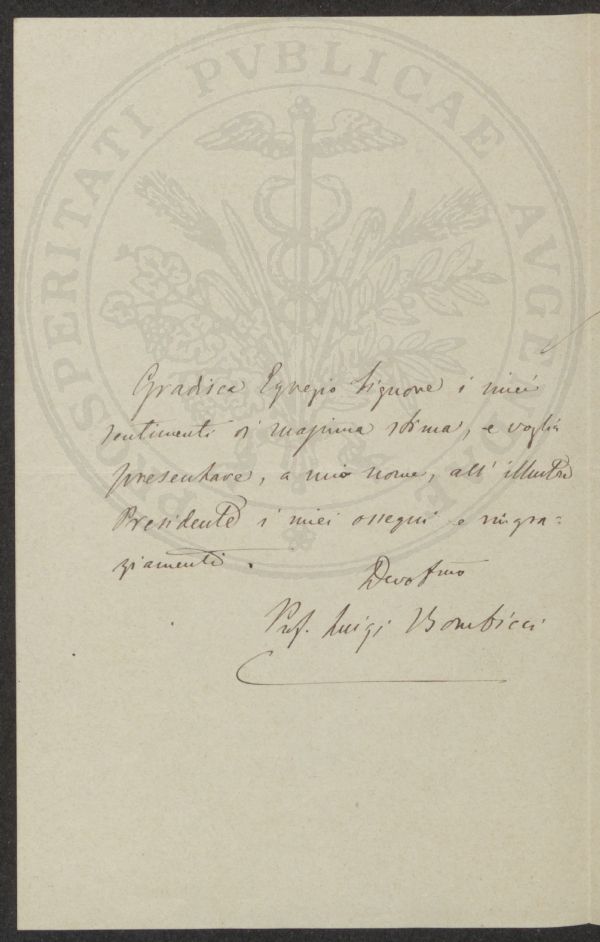 PROSPERITATI PVBLICAE AVGENDAE
Gradisca Egregio Signore i miei
sentimenti di massima stima, e voglia
presentare, a mio nome, all' illustre
Presidente i miei ossequi e ringra=
ziamenti.
Devotmo
Prof. Luigi Bombicci